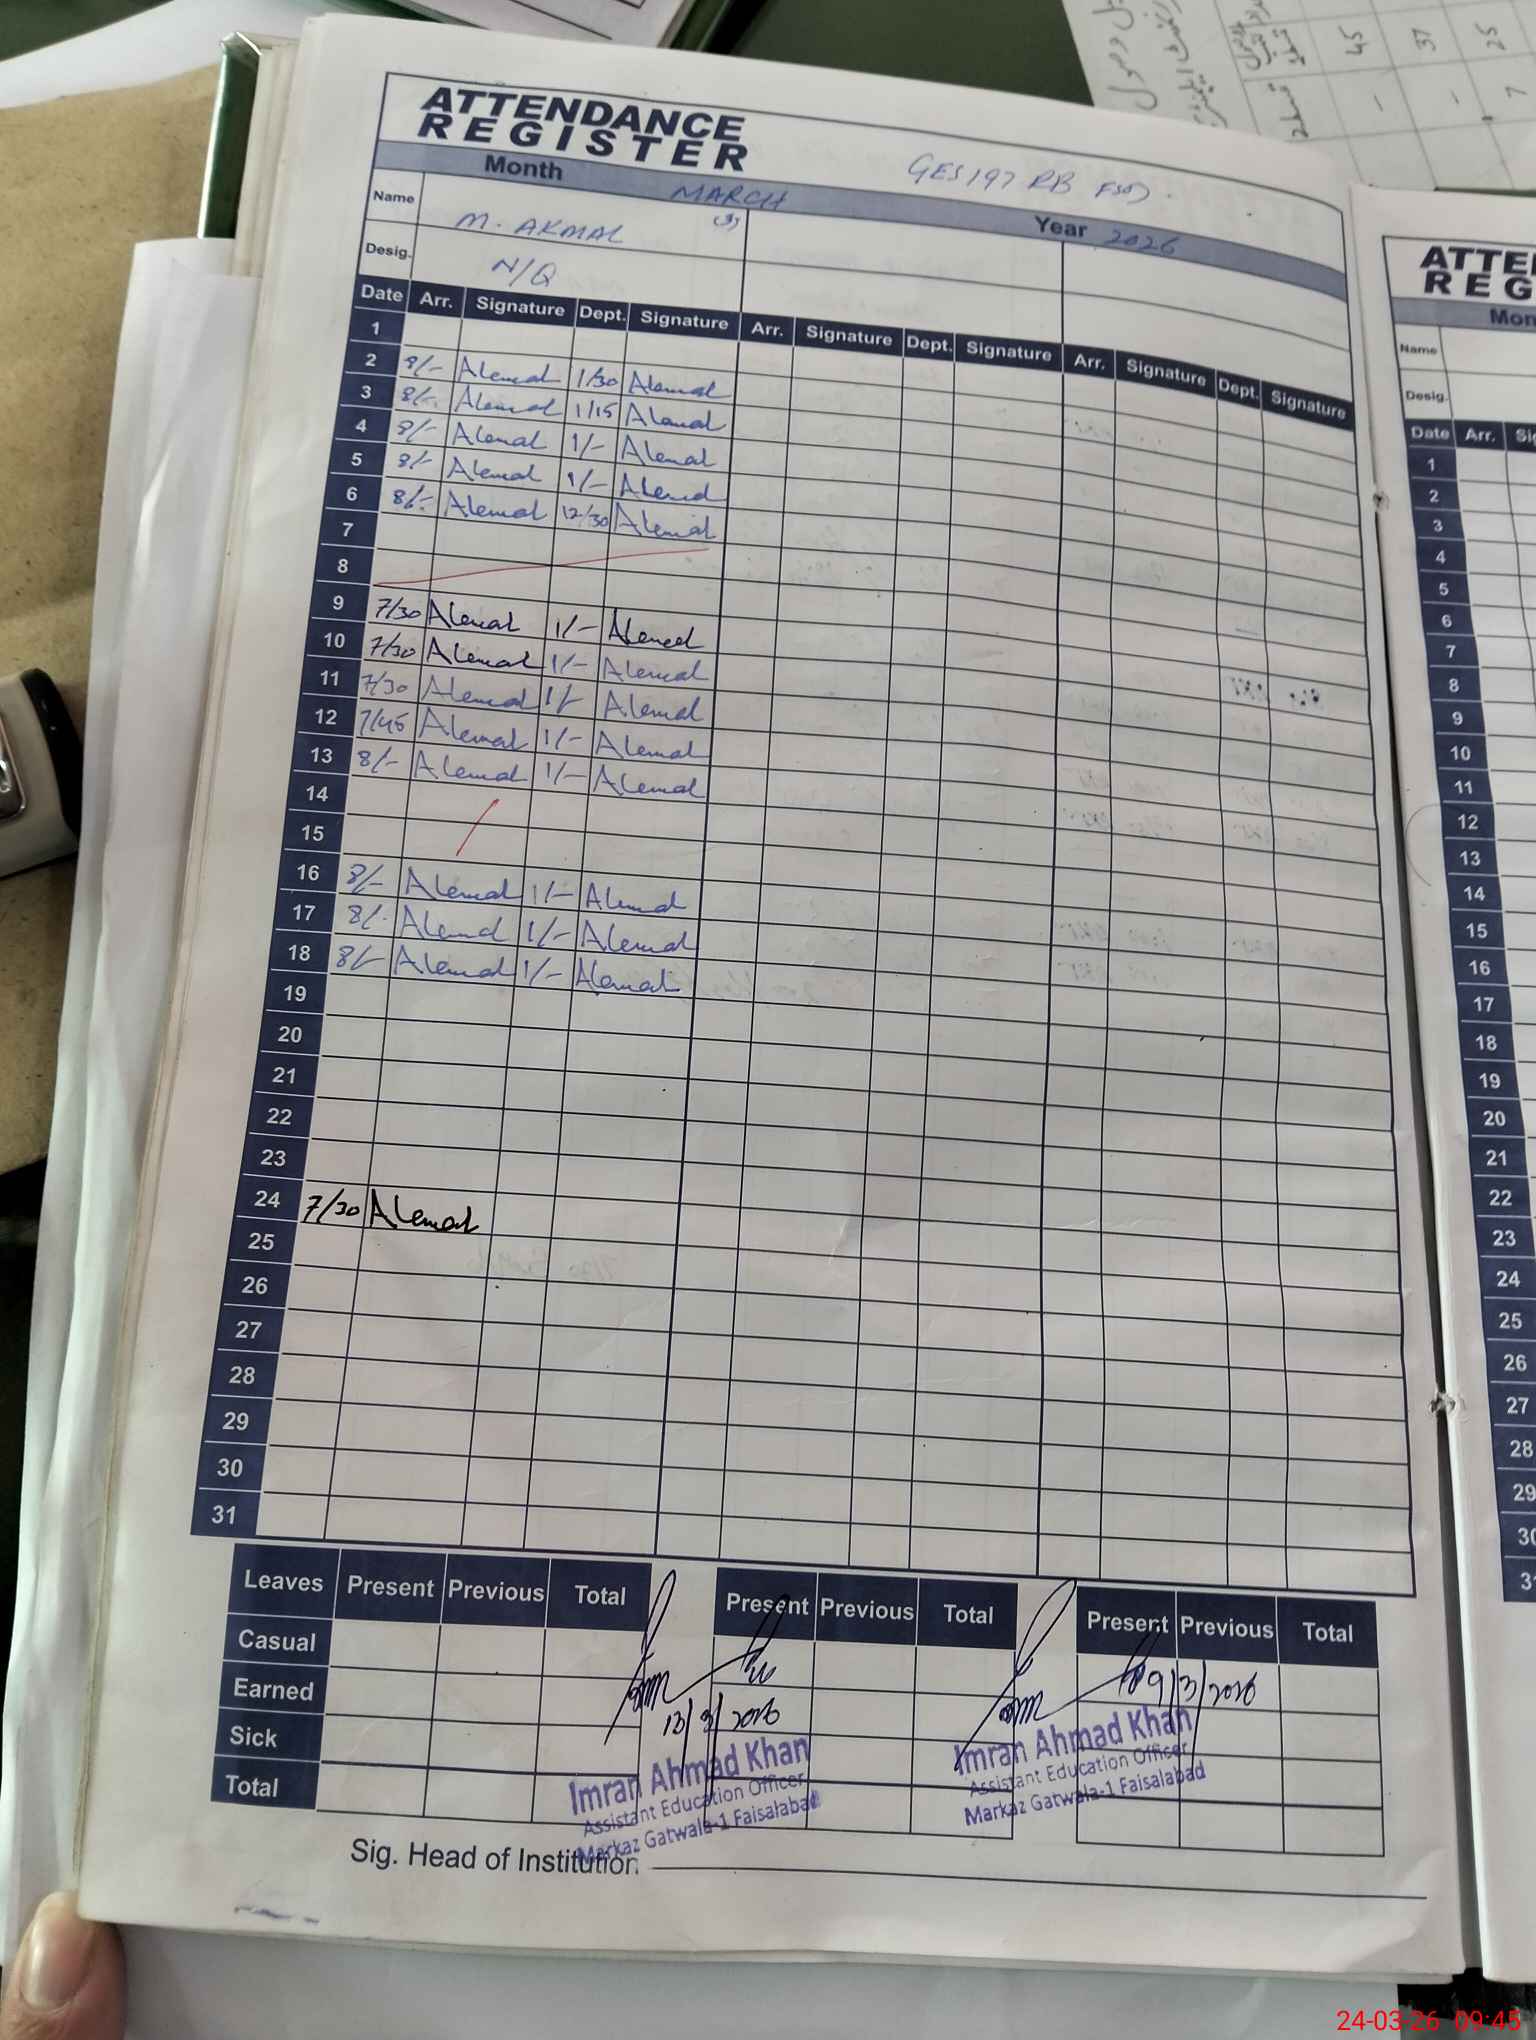 ATTENDANCE
REGISTER
GES 197 RB FSD
Month MARCH Year 2026
Name M. AKMAL
Desig. N/Q
Date Arr. Signature Dept. Signature Arr. Signature Dept. Signature Arr. Signature Dept. Signature
1
2 8/- Akmal 1/30 Akmal
3 8/- Akmal 1/15 Akmal
4 8/- Akmal 1/- Akmal
5 8/- Akmal 1/- Akmal
6 8/- Akmal 12/30 Akmal
7
8
9 7/30 Akmal 1/- Akmal
10 7/30 Akmal 1/- Akmal
11 7/30 Akmal 1/- Akmal
12 7/45 Akmal 1/- Akmal
13 8/- Akmal 1/- Akmal
14
15
16 8/- Akmal 1/- Akmal
17 8/- Akmal 1/- Akmal
18 8/- Akmal 1/- Akmal
19
20
21
22
23
24 7/30 Akmal
25
26
27
28
29
30
31
Leaves Present Previous Total Present Previous Total Present Previous Total
Casual
Earned
Sick
Total
13/3/2026
09/3/2026
Imran Ahmad Khan
Assistant Education Officer
Markaz Gatwala-1 Faisalabad
Imran Ahmad Khan
Assistant Education Officer
Markaz Gatwala-1 Faisalabad
Sig. Head of Institution.
45
37
25
7
Name
Desig.
Date Arr.
1
2
3
4
5
6
7
8
9
10
11
12
13
14
15
16
17
18
19
20
21
22
23
24
25
26
27
28
29
24-03-26 09:45